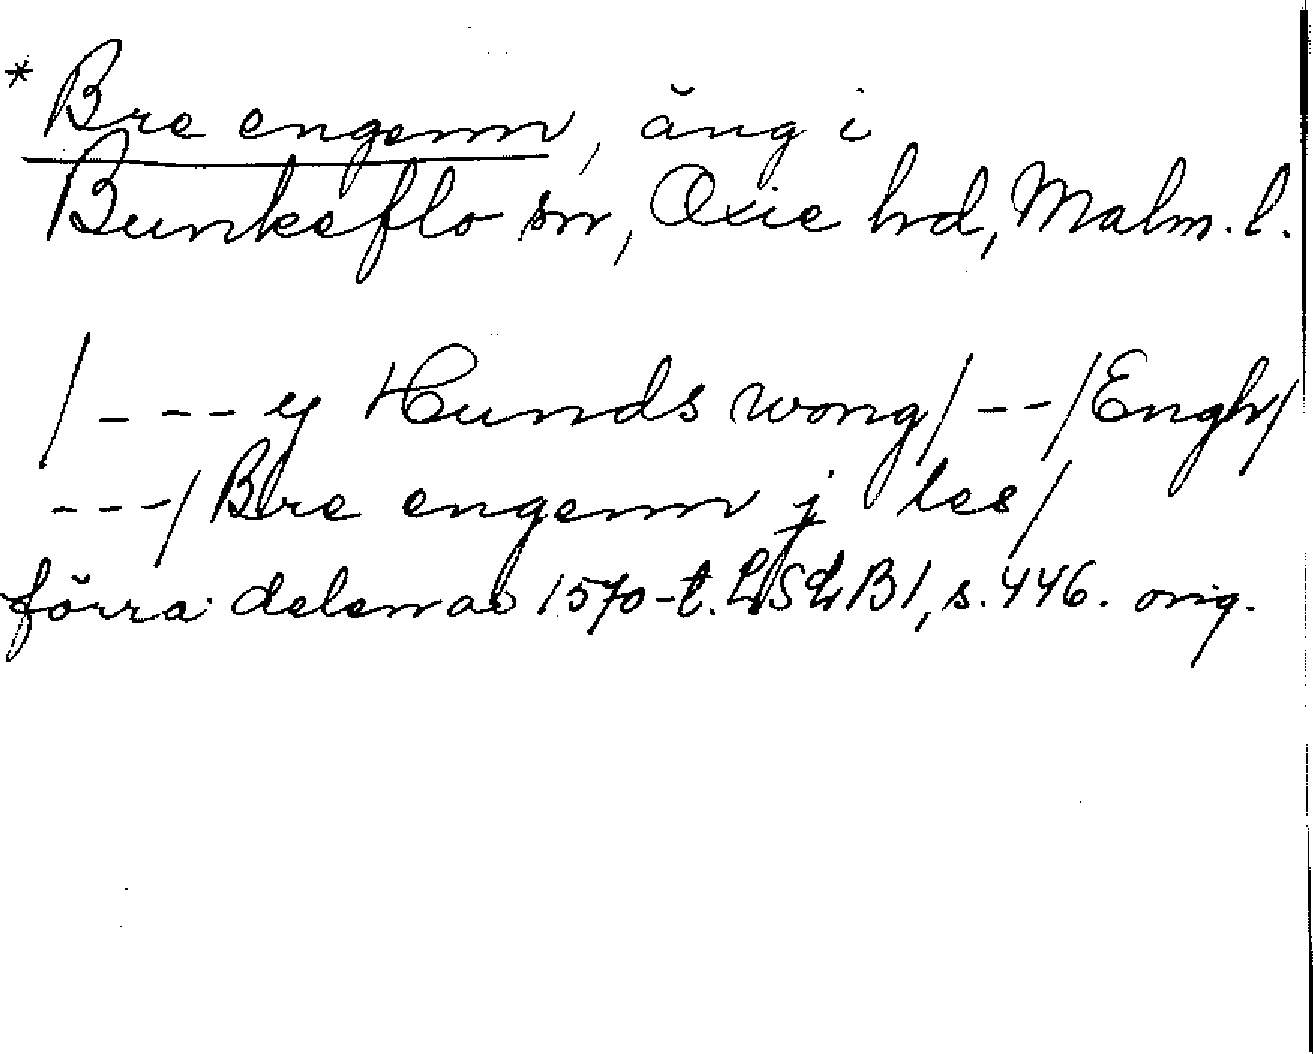 * Bre engenn, äng i
Bunkeflo sn, Oxie hd, Malm. l.
/---y Hunds wong/--/Engh/
---/Bre engenn j les/
förra delen av 1570-t. LSLB1, s. 446. orig.